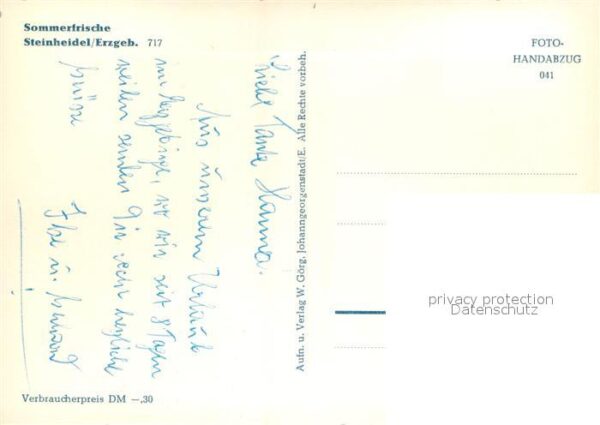 Sommerfrische
Steinheidel/Erzgeb. 717
Liebe Tante Hanna.
Aus unserem Urlaub
im Erzgebirge, wo wir seit 8 Tagen
weilen senden Dir recht herzliche
Grüsse
Aufn. u. Verlag W. Görg, Johanngeorgenstadt/E. Alle Rechte vorbeh.
FOTO-
HANDABZUG
041
privacy protection
Datenschutz
Verbraucherpreis DM —,30